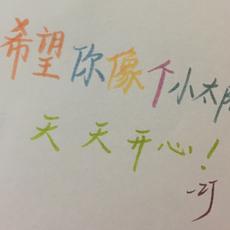 希望你像个小太
天天开心！